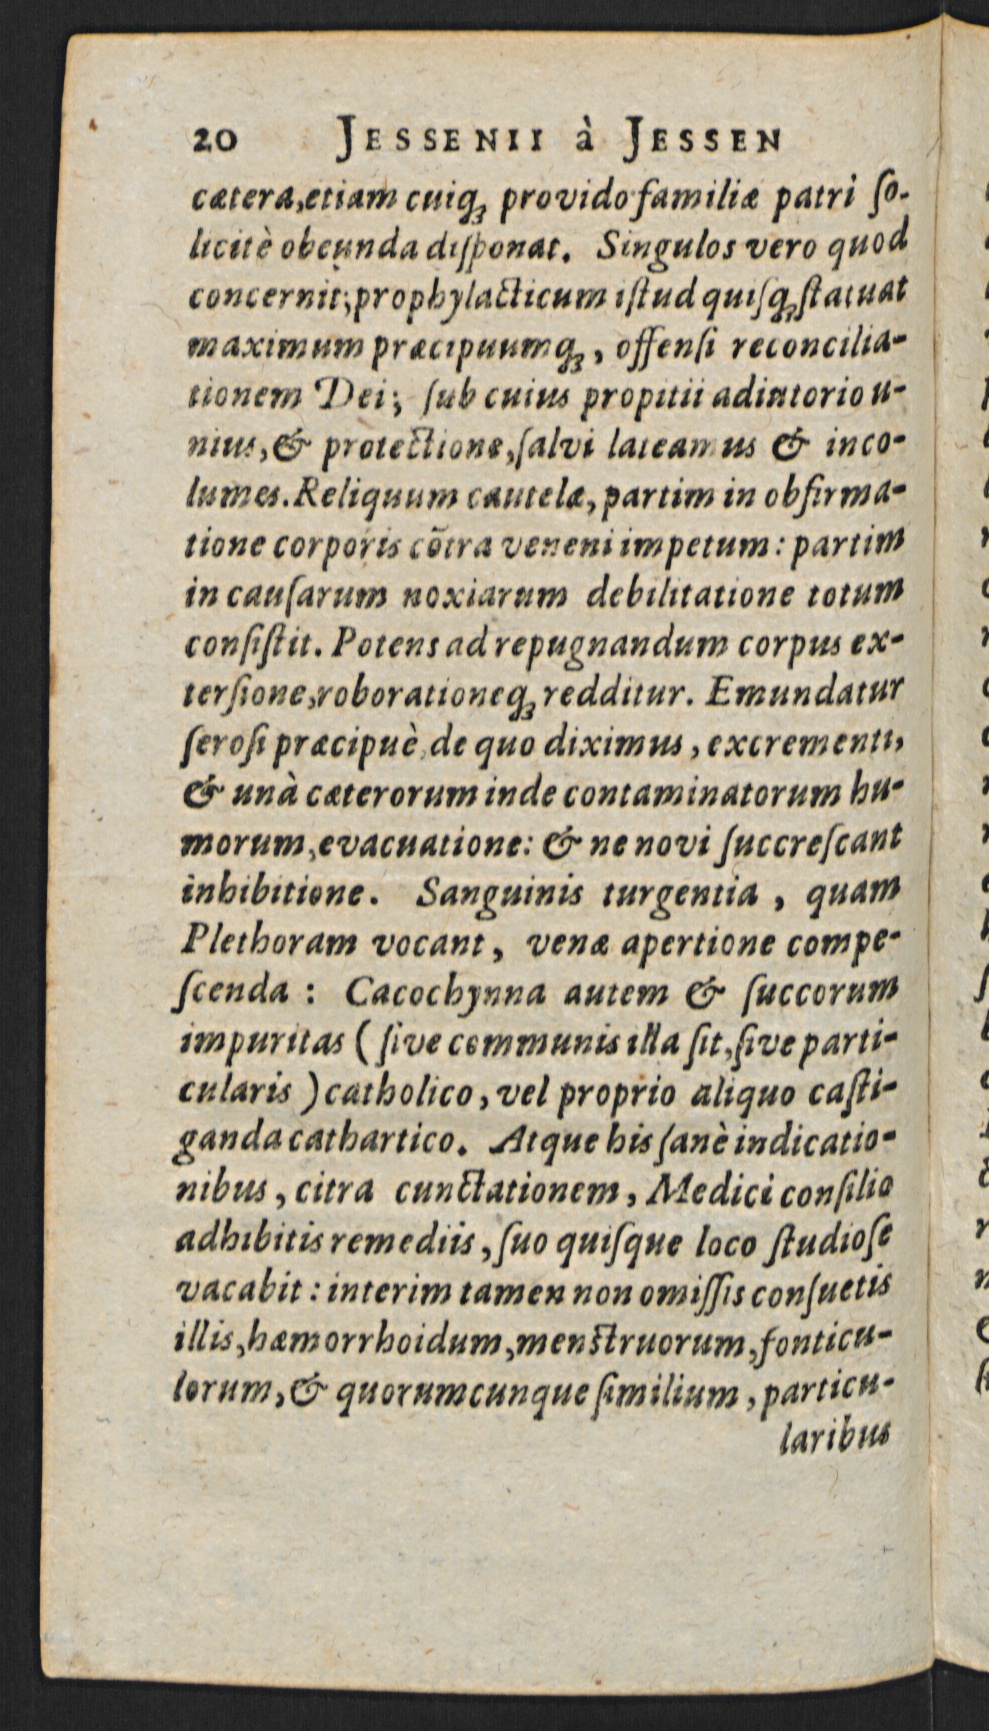 20 JESSENII à JESSEN
cætera, etiam cuiq́ꝫ provido familiæ patri ſo-
licitè obeunda diſponat. Singulos vero quod
concernit; prophylacticum iſtud quiſqꝫ ſtatuat
maximum præcipuumqꝫ, offenſi reconcilia-
tionem Dei; ſub cuius propitii adiutorio u-
nius, & protectione, ſalvi lateamus & inco-
lumes. Reliquum cautelæ, partim in obfirma-
tione corporis cõtra veneni impetum: partim
in cauſarum noxiarum debilitatione totum
conſiſtit. Potens ad repugnandum corpus ex-
terſione, roborationeqꝫ redditur. Emundatur
ſeroſi præcipuè, de quo diximus, excrementi,
& unà cæterorum inde contaminatorum hu-
morum, evacuatione: & ne novi ſuccreſcant
inhibitione. Sanguinis turgentia, quam
Plethoram vocant, venæ apertione compe-
ſcenda: Cacochynna autem & ſuccorum
impuritas (ſive communis illa ſit, ſive parti-
cularis) catholico, vel proprio aliquo caſti-
ganda cathartico. Atque his ſanè indicatio-
nibus, citra cunctationem, Medici conſilio
adhibitis remediis, ſuo quiſque loco ſtudioſe
vacabit: interim tamen non omiſſis conſuetis
illis, hæmorrhoidum, menſtruorum, fonticu-
lorum, & quorumcunque ſimilium, particu-
laribus